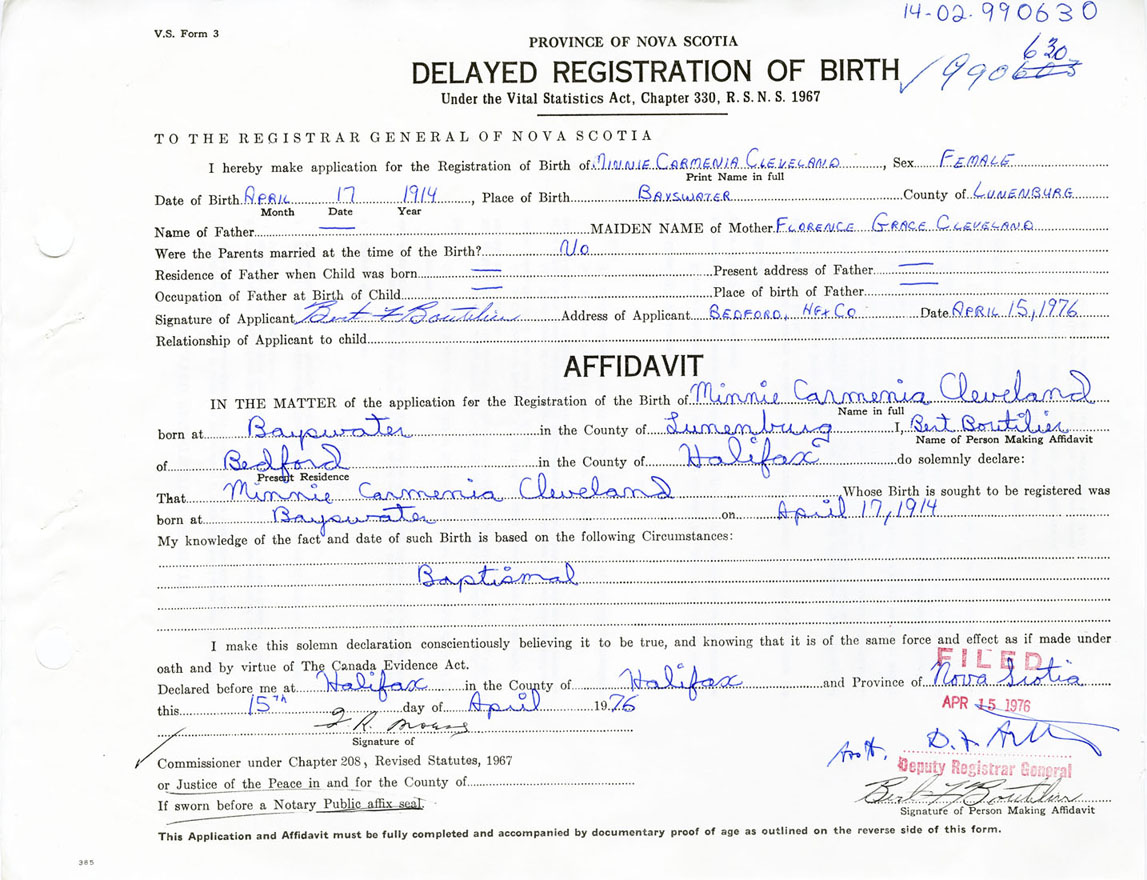 14-02-990630
V.S. Form 3
PROVINCE OF NOVA SCOTIA
630
DELAYED REGISTRATION OF BIRTH
990603
Under the Vital Statistics Act, Chapter 330, R.S.N.S. 1967
TO THE REGISTRAR GENERAL OF NOVA SCOTIA
I hereby make application for the Registration of Birth of MINNIE CARMENIA CLEVELAND, Sex FEMALE
Print Name in full
Date of Birth APRIL 17 1914, Place of Birth BAYSWATER County of LUNENBURG
Month Date Year
Name of Father — MAIDEN NAME of Mother FLORENCE GRACE CLEVELAND
Were the Parents married at the time of the Birth? NO
Residence of Father when Child was born — Present address of Father —
Occupation of Father at Birth of Child — Place of birth of Father —
Signature of Applicant Bert F Boutilier Address of Applicant BEDFORD, HFX CO Date APRIL 15, 1976
Relationship of Applicant to child
AFFIDAVIT
IN THE MATTER of the application for the Registration of the Birth of Minnie Carmenia Cleveland
Name in full
born at Bayswater in the County of Lunenburg I, Bert Boutilier
Name of Person Making Affidavit
of Bedford in the County of Halifax do solemnly declare:
Present Residence
That Minnie Carmenia Cleveland Whose Birth is sought to be registered was
born at Bayswater on April 17, 1914
My knowledge of the fact and date of such Birth is based on the following Circumstances:
Baptismal
I make this solemn declaration conscientiously believing it to be true, and knowing that it is of the same force and effect as if made under
oath and by virtue of The Canada Evidence Act.
FILED
Declared before me at Halifax in the County of Halifax and Province of Nova Scotia
this 15th day of April 1976
APR 15 1976
Signature of
Commissioner under Chapter 208, Revised Statutes, 1967
Deputy Registrar General
or Justice of the Peace in and for the County of
Bert F Boutilier
If sworn before a Notary Public affix seal.
Signature of Person Making Affidavit
This Application and Affidavit must be fully completed and accompanied by documentary proof of age as outlined on the reverse side of this form.
385